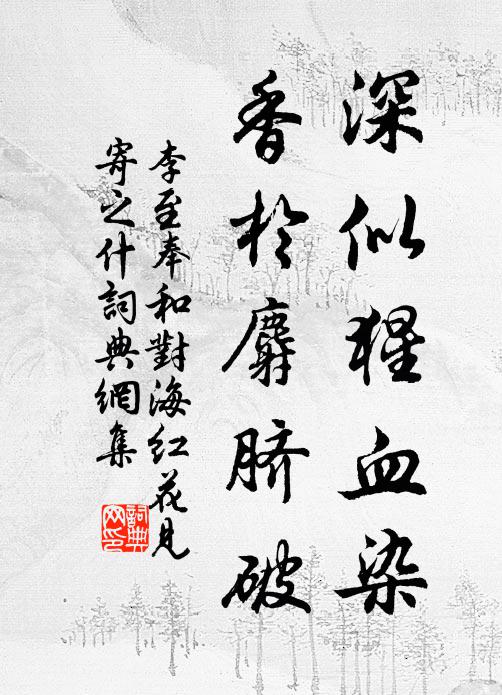 深似猩血染
香於麝臍破
李至奉和對海紅花見
寄之什詞典網集
詞典
网印